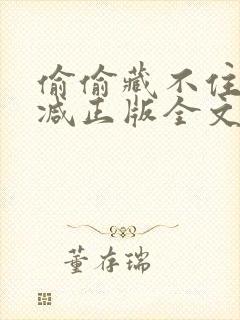 偷偷藏不住
减正版全文
董存瑞